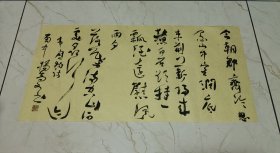 今朝郡齋冷忽
念山中客澗底
束荆薪歸來
煮白石欲持一
瓢酒遠慰風
雨夕
落葉滿空山何
處尋行跡